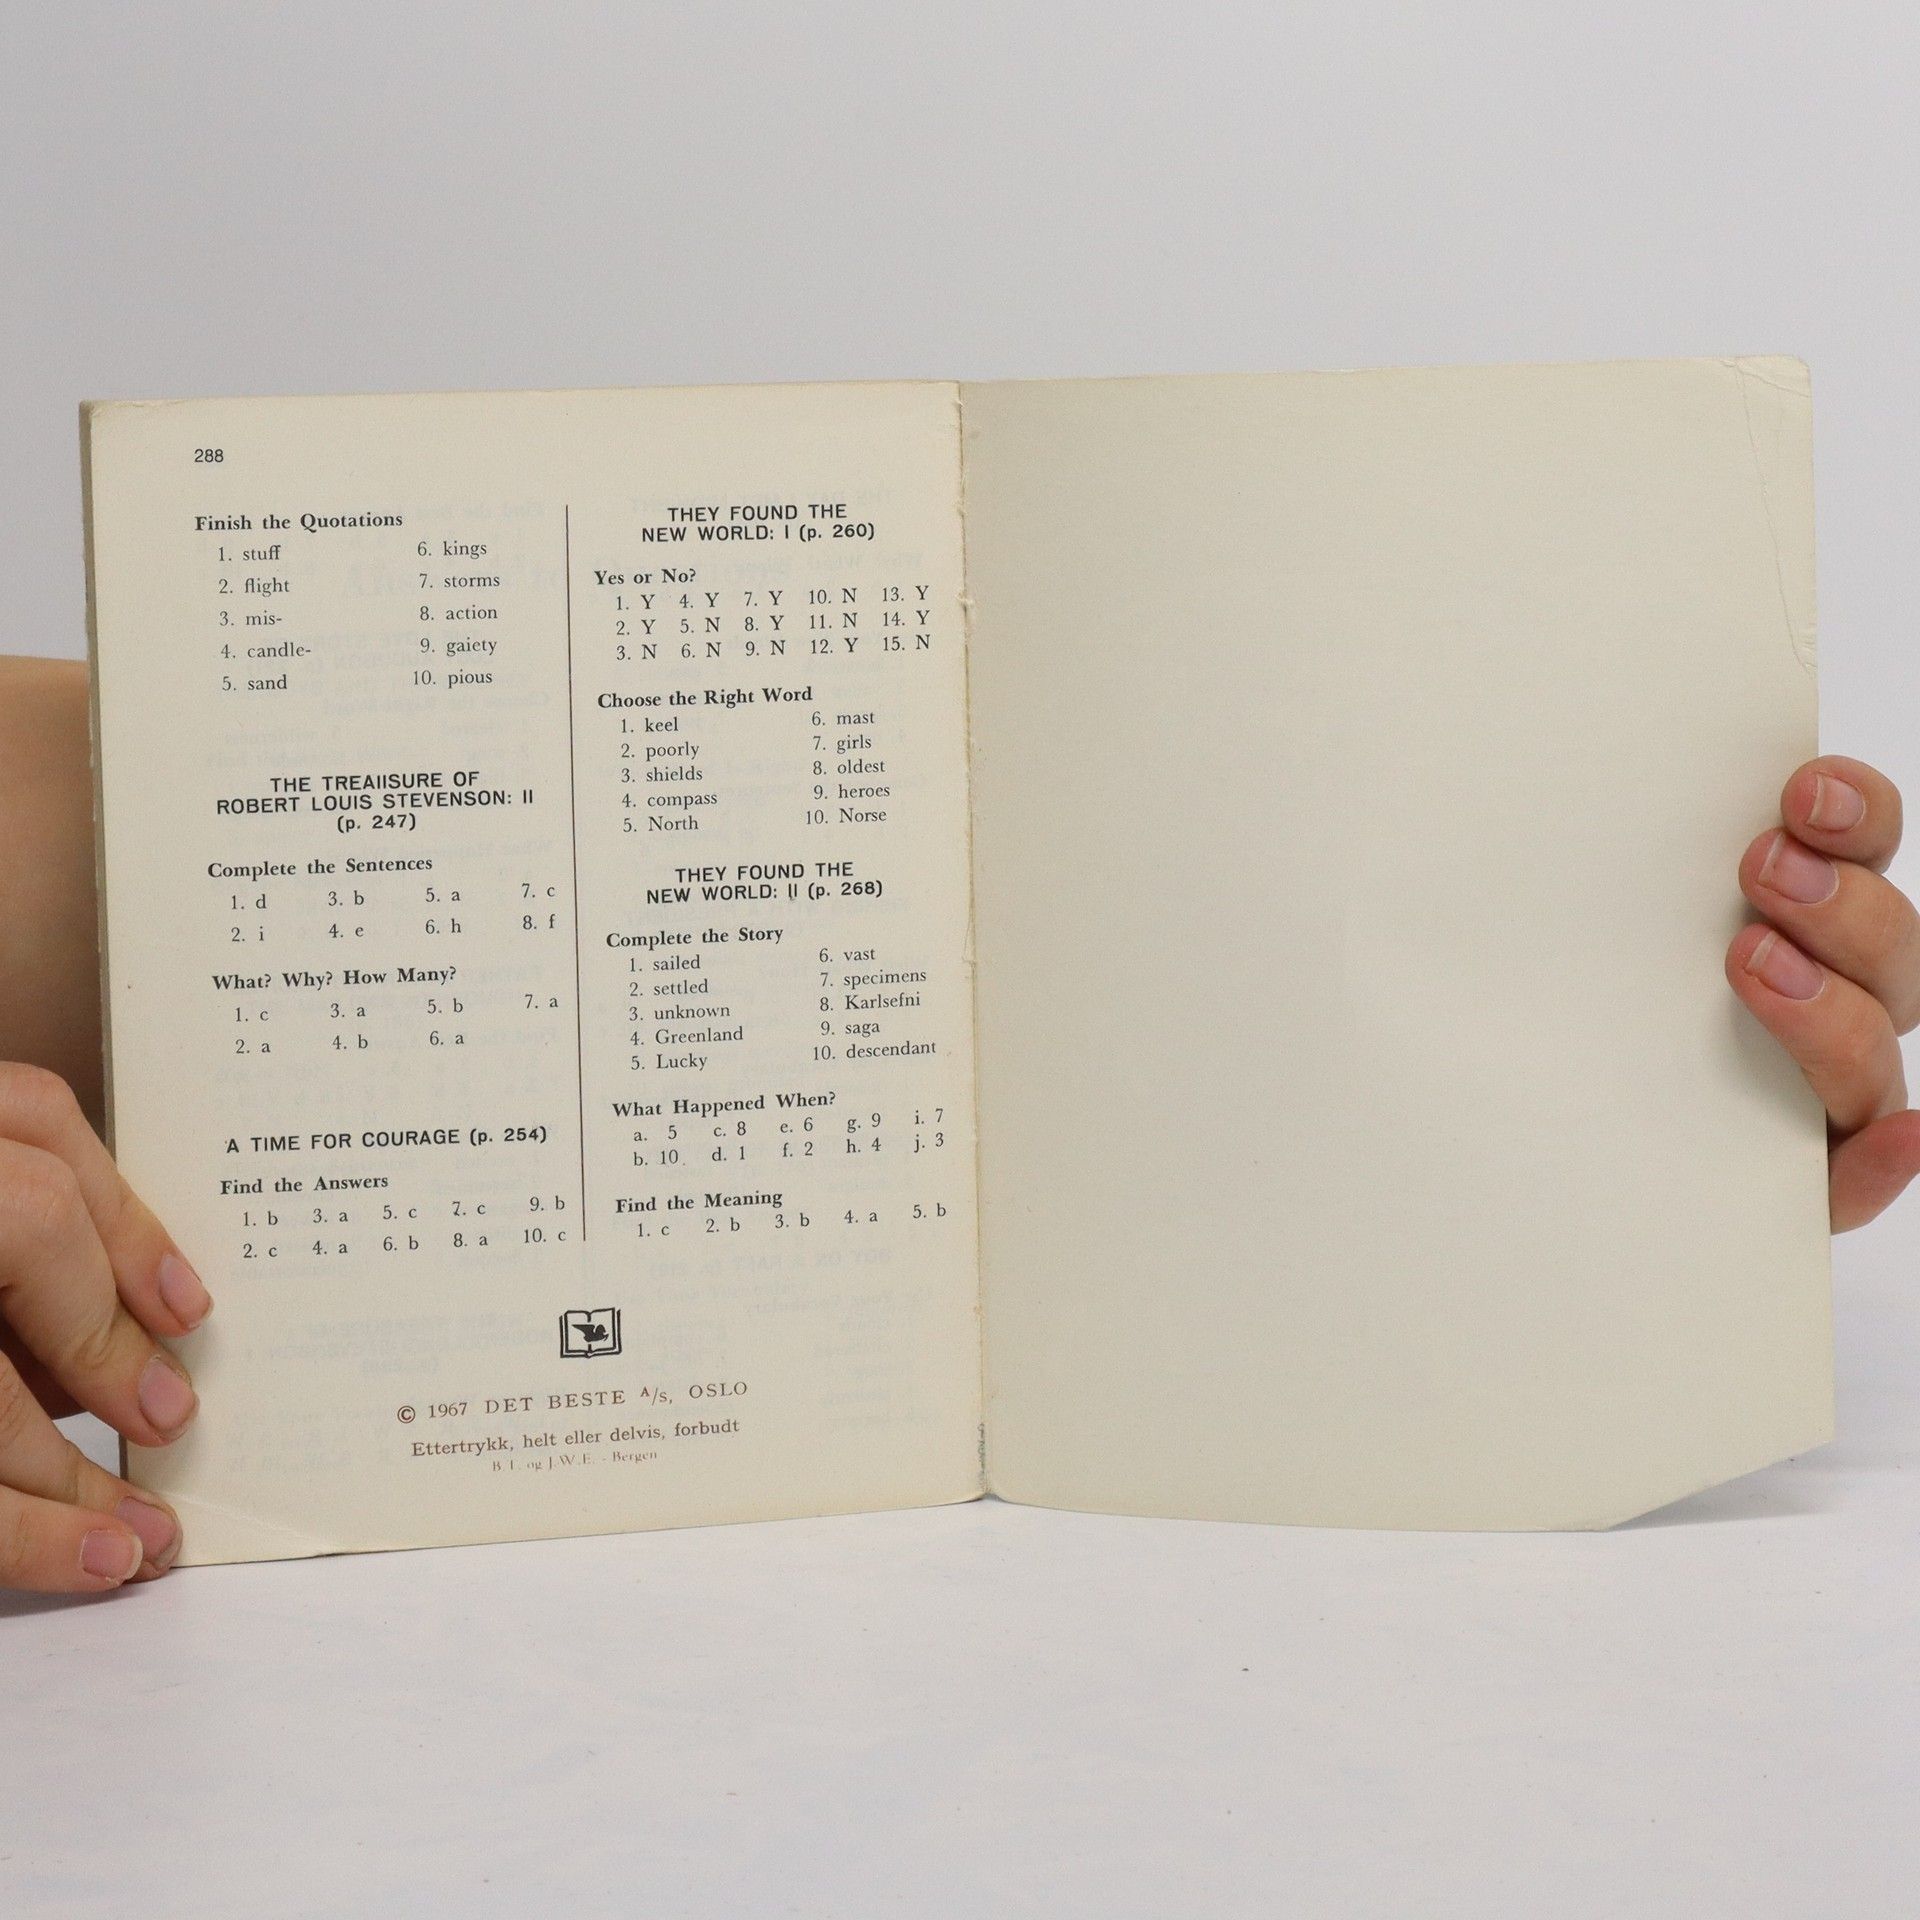 288
Finish the Quotations
1. stuff 6. kings
2. flight 7. storms
3. mis- 8. action
4. candle- 9. gaiety
5. sand 10. pious
THE TREAIISURE OF
ROBERT LOUIS STEVENSON: II
(p. 247)
Complete the Sentences
1. d 3. b 5. a 7. c
2. i 4. e 6. h 8. f
What? Why? How Many?
1. c 3. a 5. b 7. a
2. a 4. b 6. a
A TIME FOR COURAGE (p. 254)
Find the Answers
1. b 3. a 5. c 7. c 9. b
2. c 4. a 6. b 8. a 10. c
THEY FOUND THE
NEW WORLD: I (p. 260)
Yes or No?
1. Y 4. Y 7. Y 10. N 13. Y
2. Y 5. N 8. Y 11. N 14. Y
3. N 6. N 9. N 12. Y 15. N
Choose the Right Word
1. keel 6. mast
2. poorly 7. girls
3. shields 8. oldest
4. compass 9. heroes
5. North 10. Norse
THEY FOUND THE
NEW WORLD: II (p. 268)
Complete the Story
1. sailed 6. vast
2. settled 7. specimens
3. unknown 8. Karlsefni
4. Greenland 9. saga
5. Lucky 10. descendant
What Happened When?
a. 5 c. 8 e. 6 g. 9 i. 7
b. 10 d. 1 f. 2 h. 4 j. 3
Find the Meaning
1. c 2. b 3. b 4. a 5. b
© 1967 DET BESTE A/s, OSLO
Ettertrykk, helt eller delvis, forbudt
og J.W.E. - Bergen